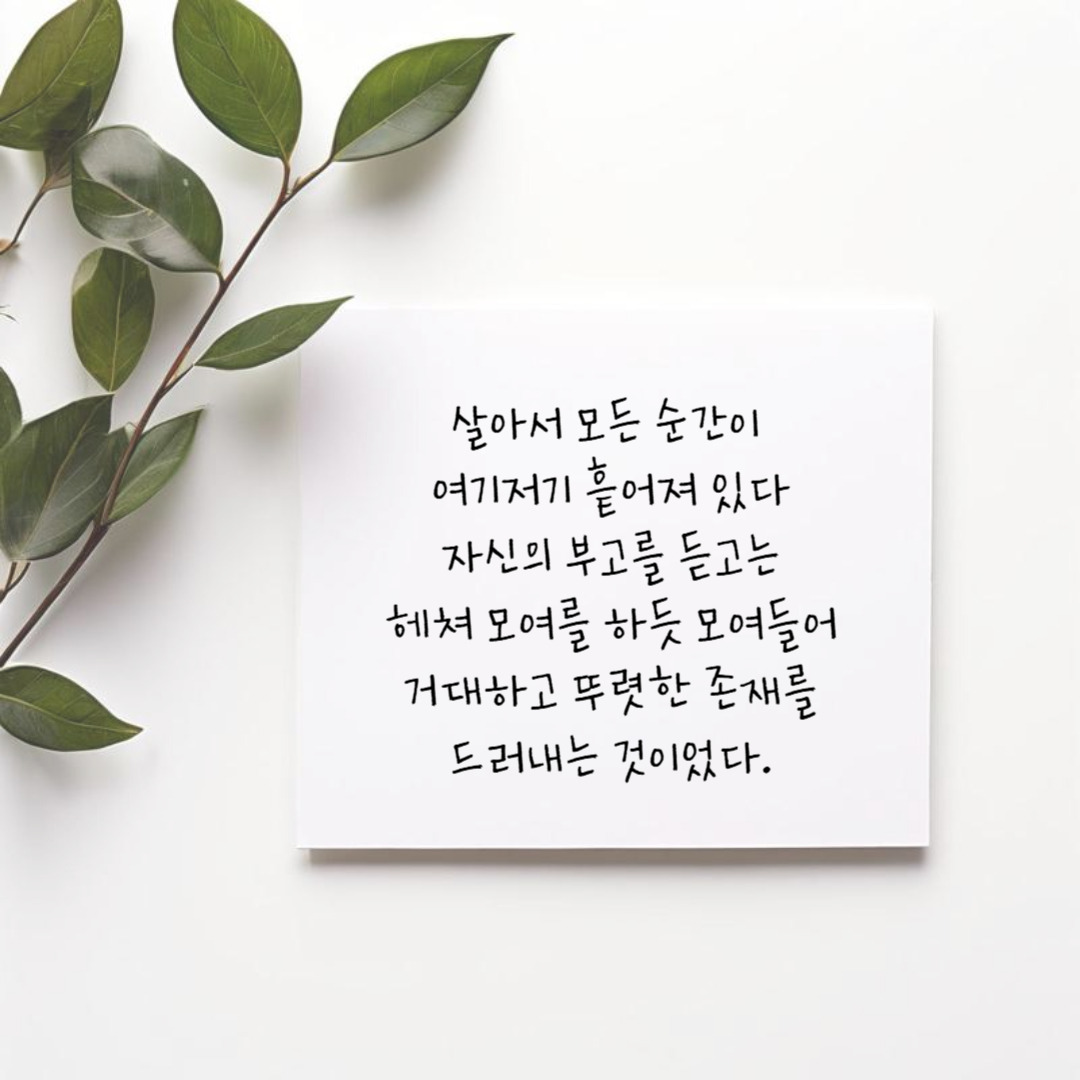 살아서 모든 순간이
여기저기 흩어져 있다
자신의 부고를 듣고는
헤쳐 모여를 하듯 모여들어
거대하고 뚜렷한 존재를
드러내는 것이었다.